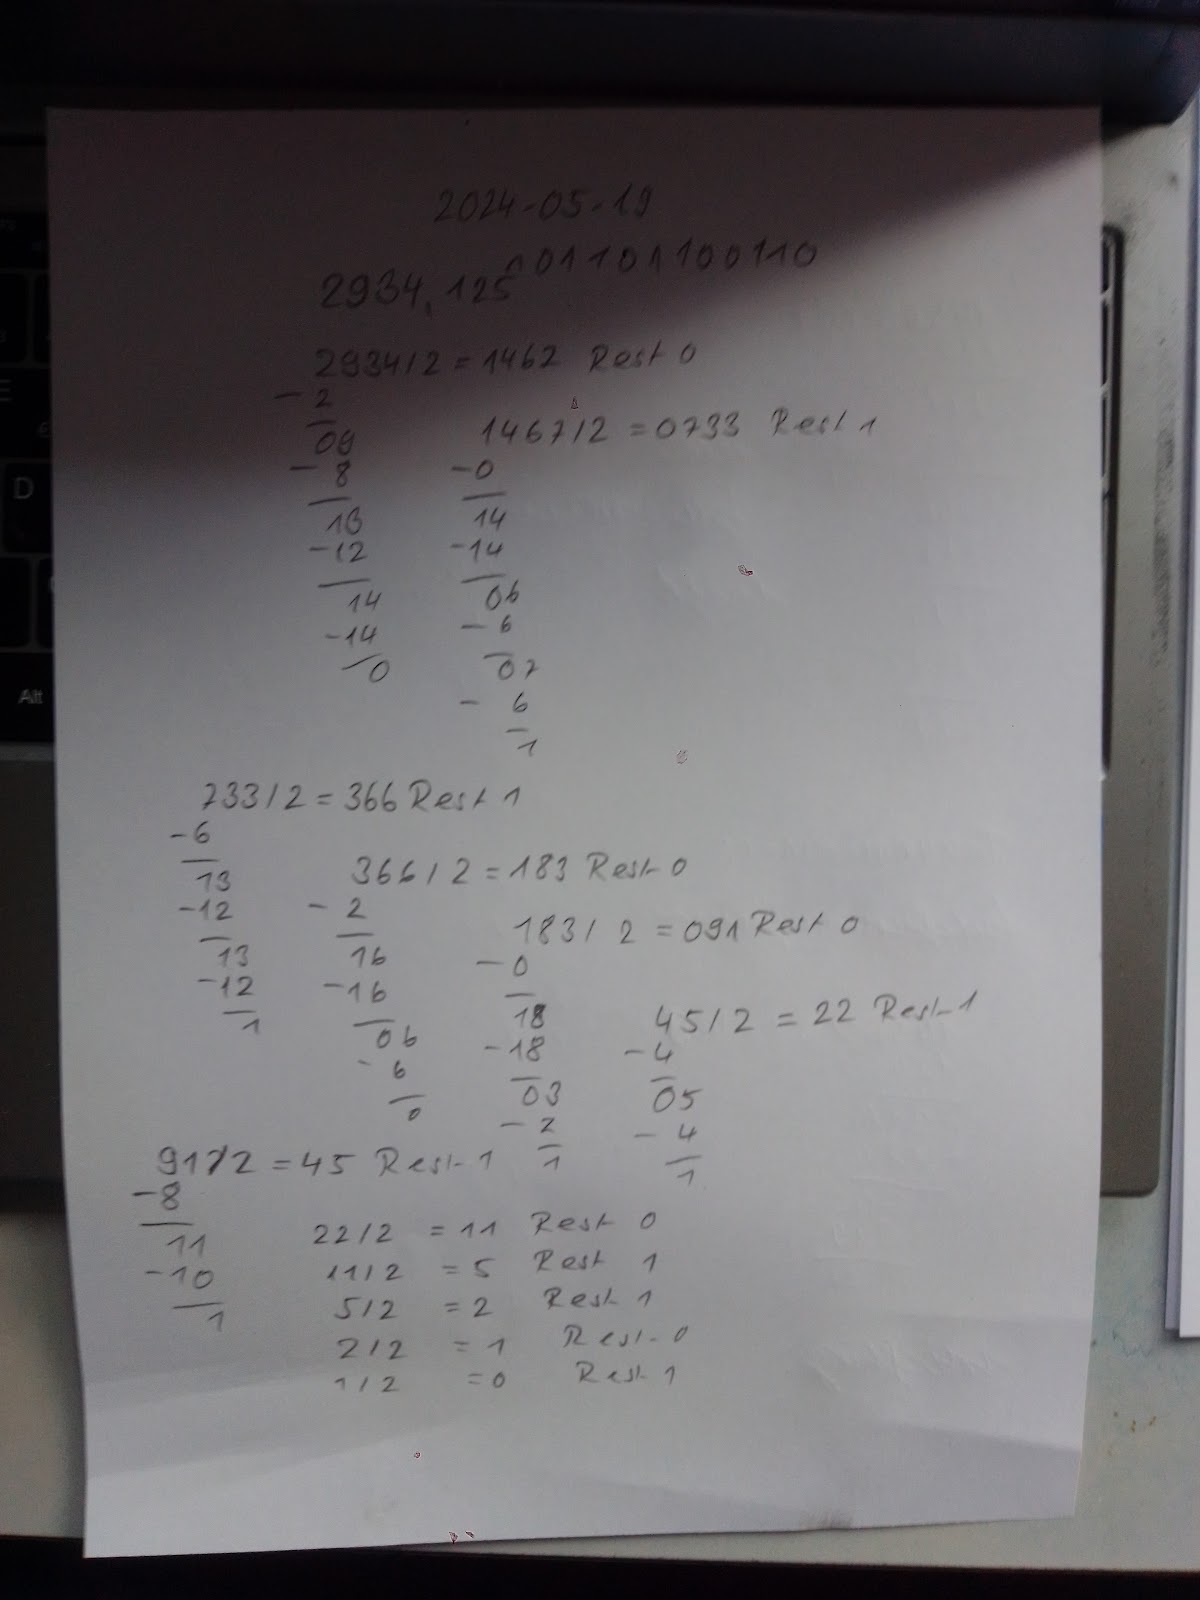 2024-05-19
101101100110
2934,125
2934/2 = 1462 Rest 0
- 2
09
- 8
13
-12
14
-14
0
1467/2 = 0733 Rest 1
-0
14
-14
06
- 6
07
- 6
1
733/2 = 366 Rest 1
-6
13
-12
13
-12
1
366/2 = 183 Rest 0
- 2
16
-16
06
- 6
0
183/2 = 091 Rest 0
- 0
18
-18
03
- 2
1
45/2 = 22 Rest 1
-4
05
- 4
1
91/2 = 45 Rest 1
-8
11
-10
1
22/2 = 11 Rest 0
11/2 = 5 Rest 1
5/2 = 2 Rest 1
2/2 = 1 Rest 0
1/2 = 0 Rest 1
D
Alt